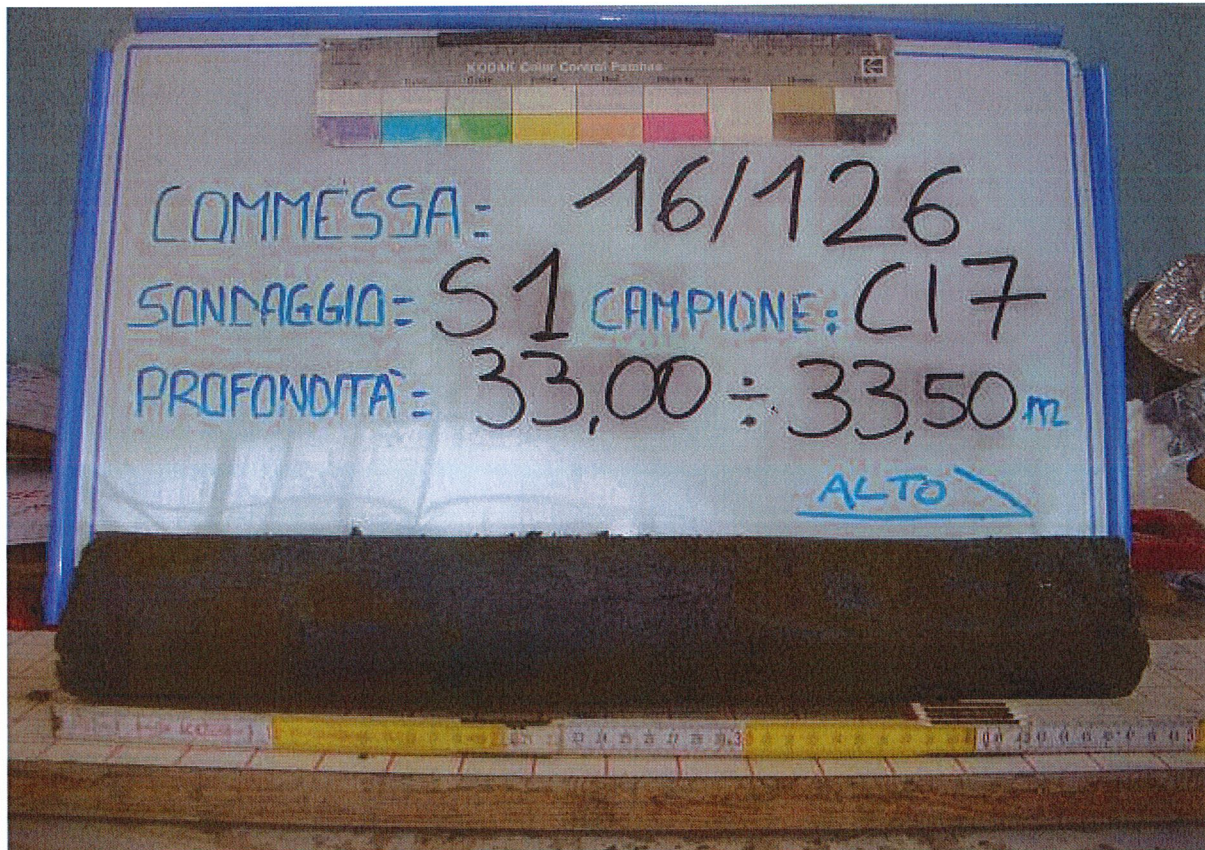 KODAK Color Control Patches
COMMESSA: 16/126
SONDAGGIO: S1 CAMPIONE: CI7
PROFONDITÀ: 33,00 ÷ 33,50 m
ALTO